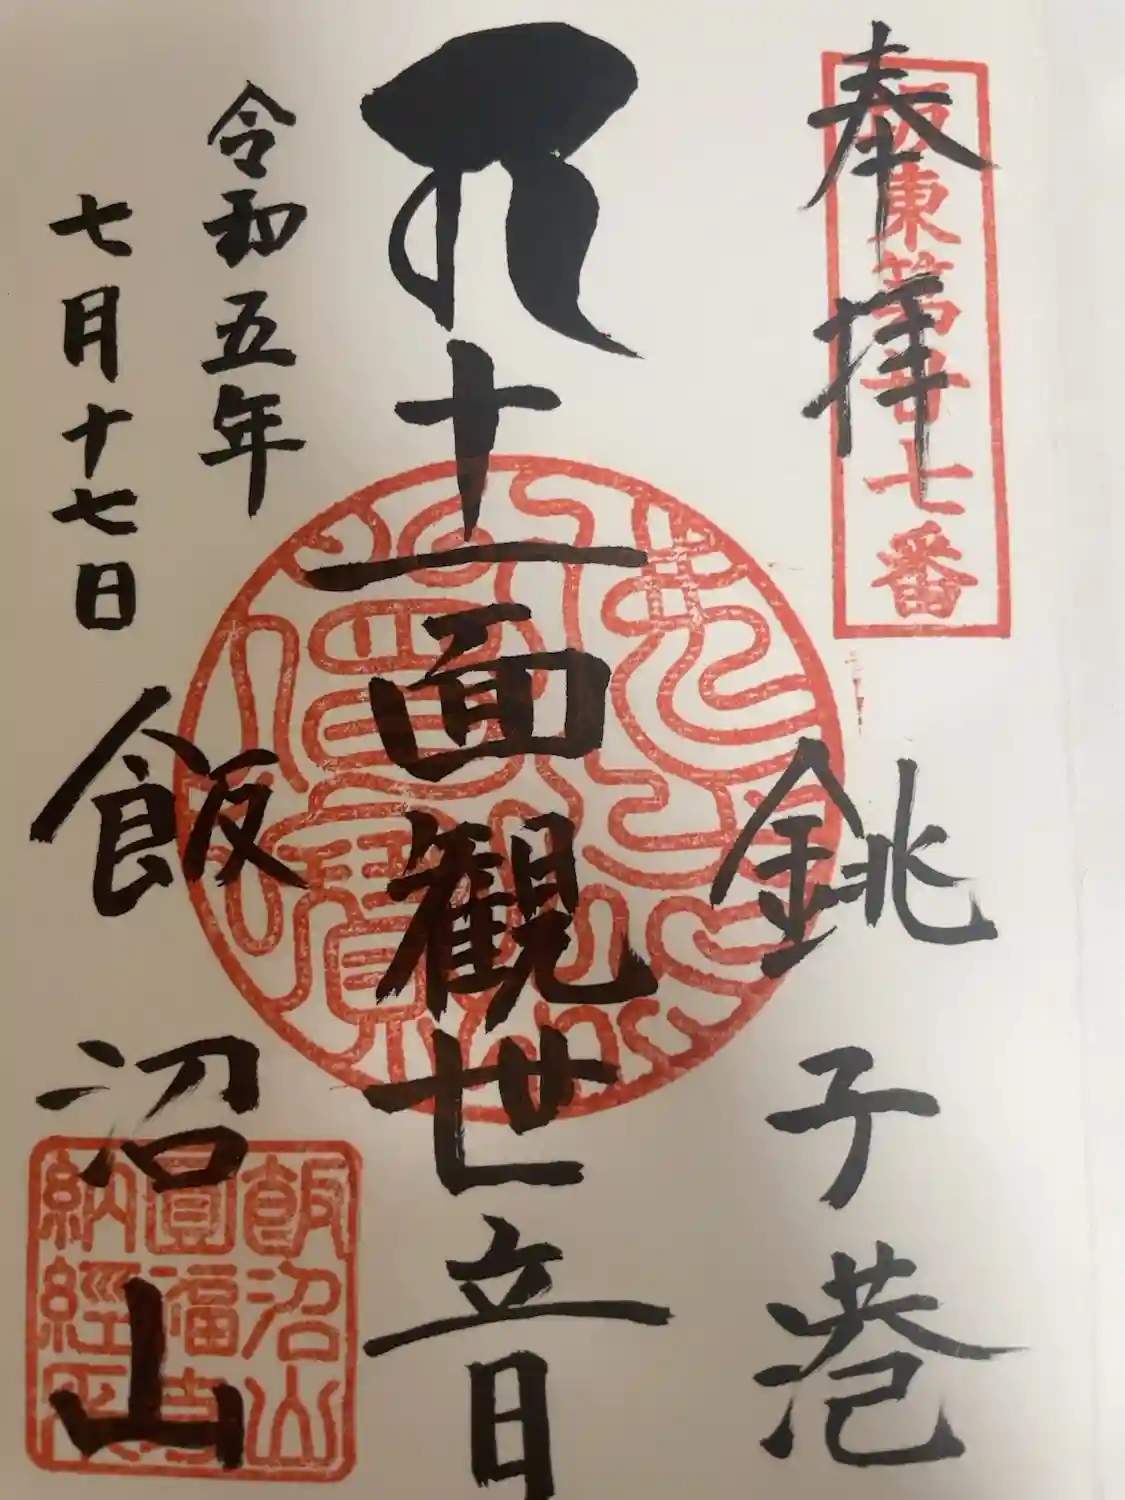 奉拝
坂東第廿七番
銚子港
十一面観世音
令和五年
七月十七日
飯沼山
飯沼山
圓福寺
納經之